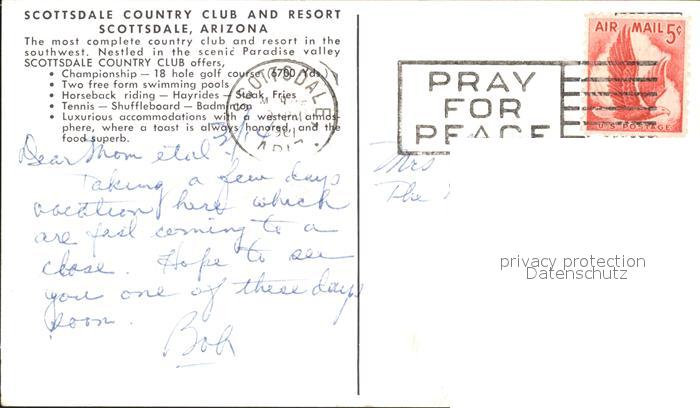 SCOTTSDALE COUNTRY CLUB AND RESORT
SCOTTSDALE, ARIZONA
The most complete country club and resort in the
southwest. Nestled in the scenic Paradise valley
SCOTTSDALE COUNTRY CLUB offers,
• Championship — 18 hole golf course (6700 Yds.)
• Two free form swimming pools
• Horseback riding — Hayrides — Steak Fries
• Tennis — Shuffleboard — Badminton
• Luxurious accommodations with a western atmos-
phere, where a toast is always honored, and the
food superb.
SCOTTSDALE
ARIZ
PRAY
FOR
PEACE
AIR MAIL 5¢
U.S. POSTAGE
Dear Mom et al
Taking a few days
vacation here which
are fast coming to a
close. Hope to see
you one of these days
soon.
Bob
Mrs
The
privacy protection
Datenschutz